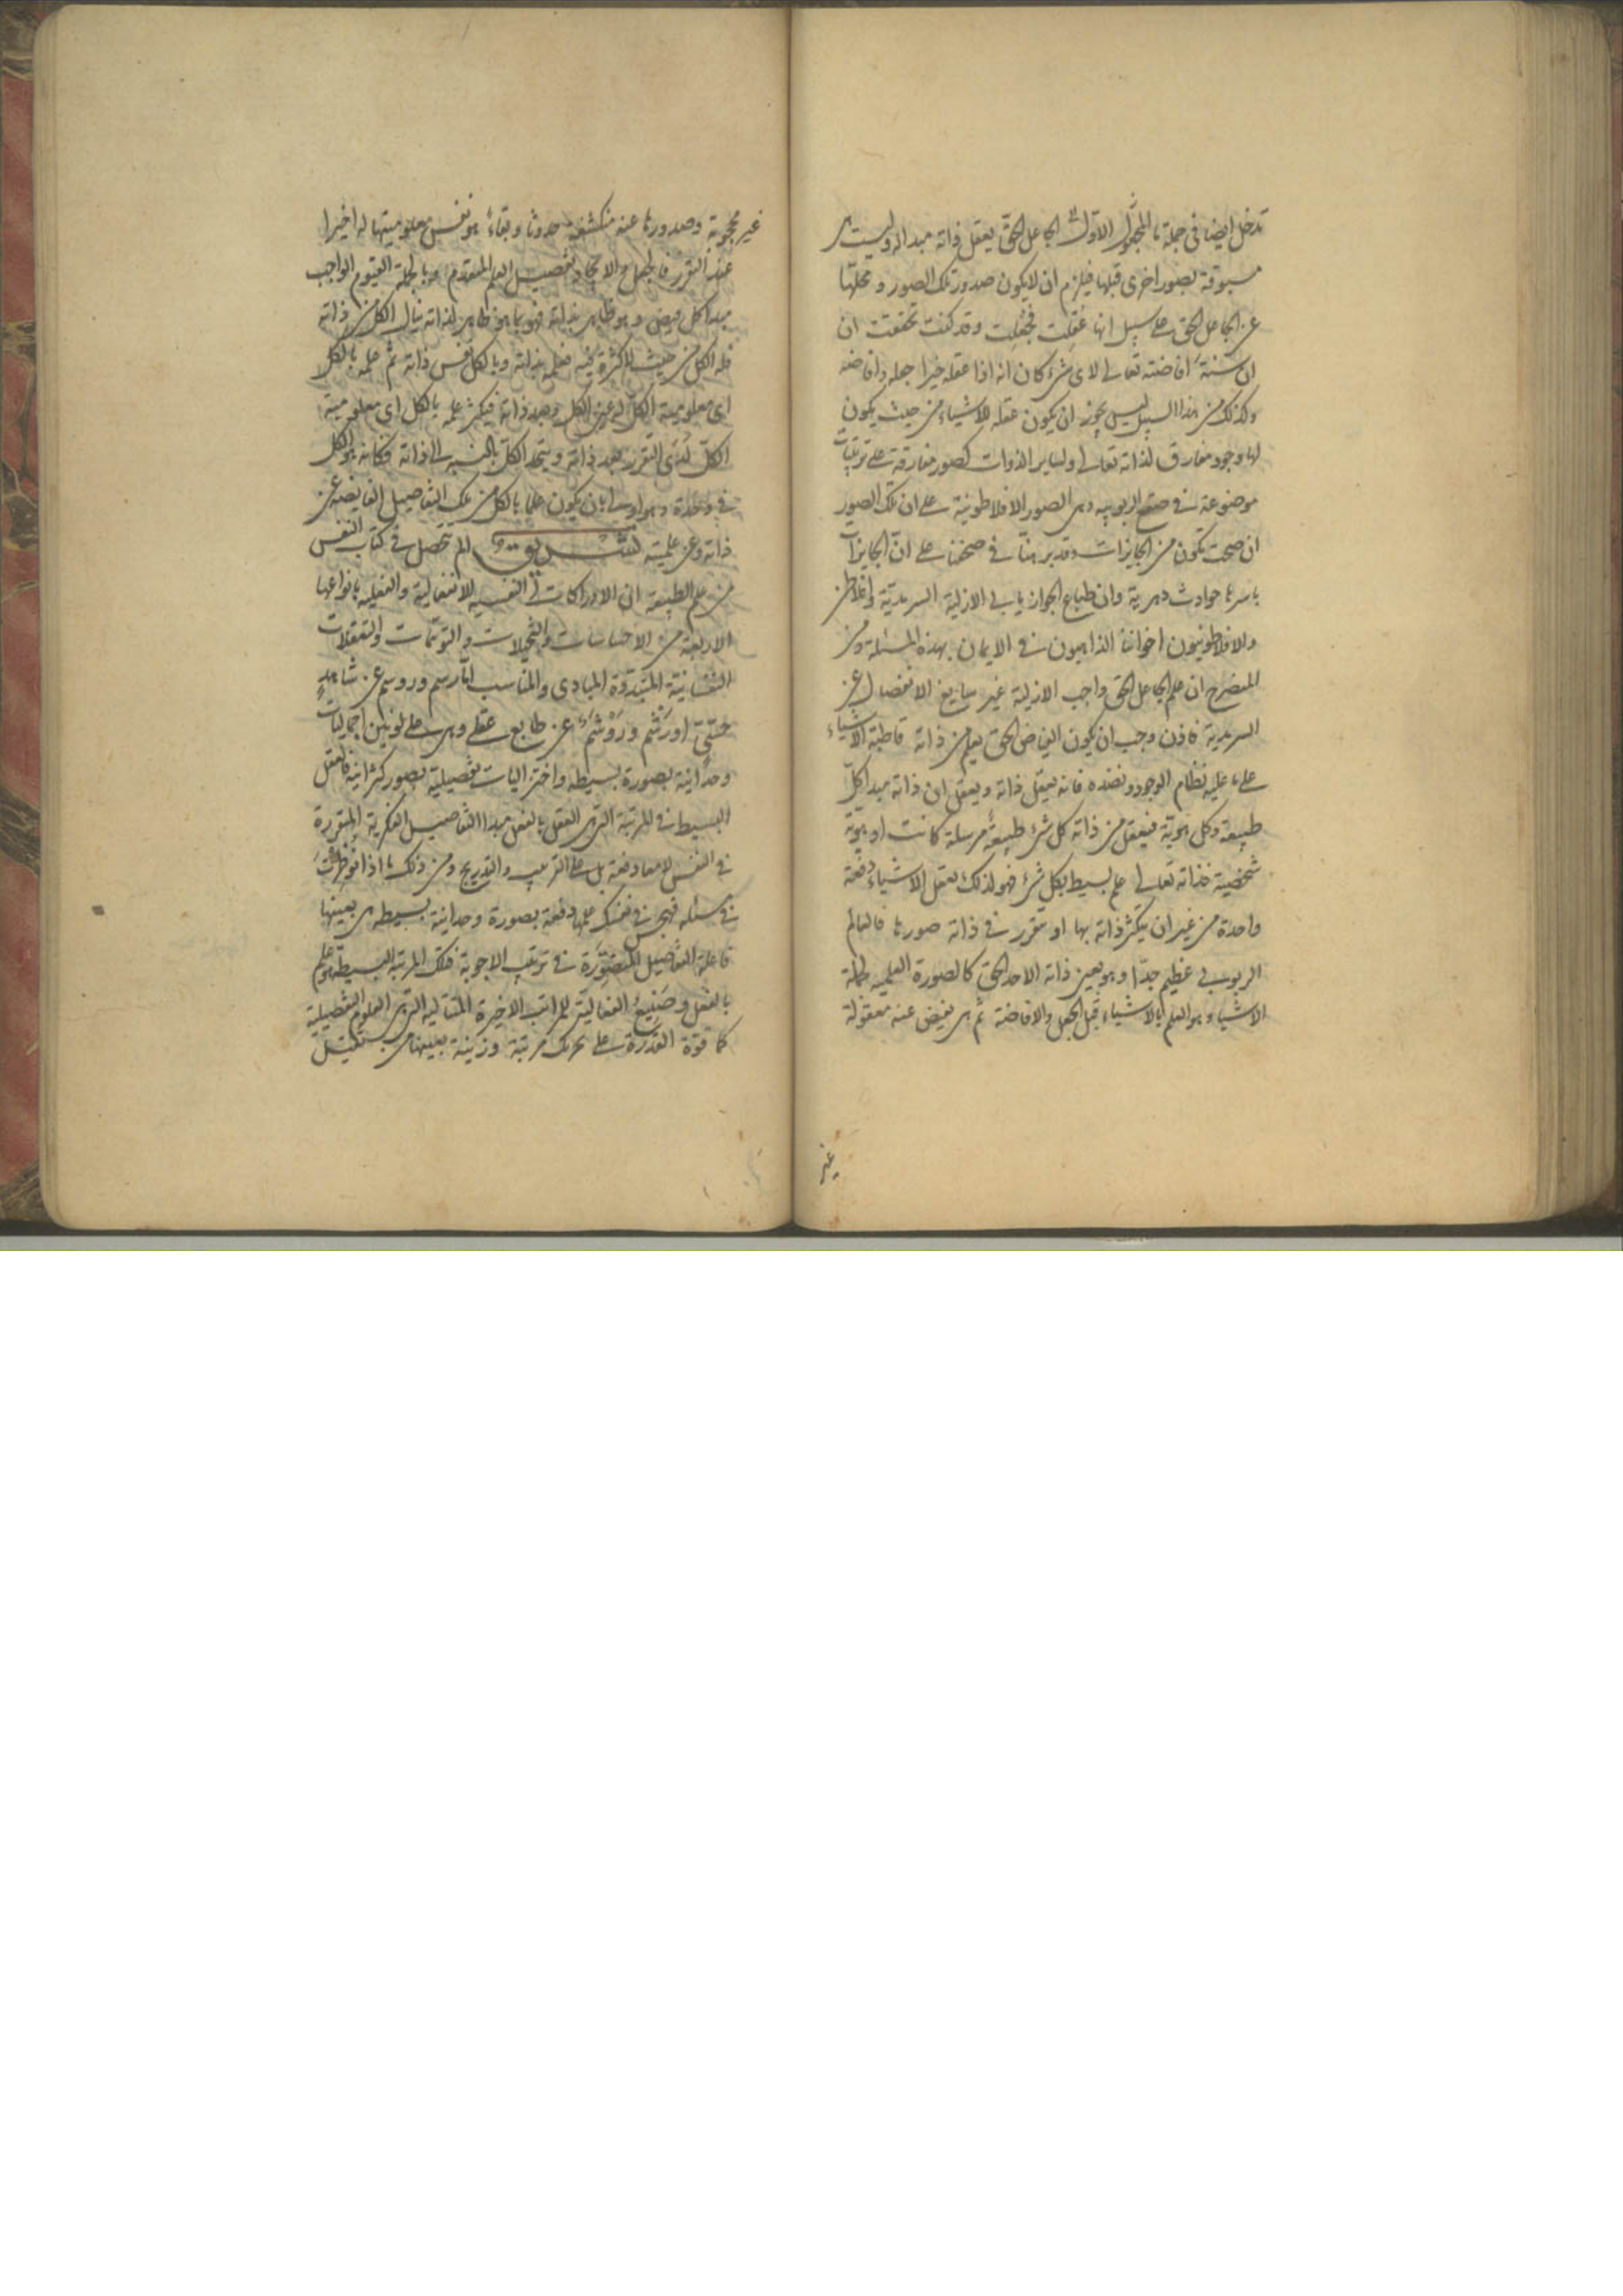 تدخل ايضا فى جملة ما المجعول الاول الجاعل الحق يعقل ذاته مبدا له وليست
مسبوقة بصور اخرى قبلها فيلزم ان لا يكون صدور تلك الصور و محلها
عن الجاعل الحق على سبيل انها عقلت فجعلت وقد كنت تحققت ان
ان سنة افاضته تعالى لاى شىء كان انه اذا عقله خيرا جعله وافاضه
وكذلك من هذا السبيل ليس يجوز ان يكون عقله للاشياء من حيث يكون
لها وجود مفارق لذاته تعالى ولساير الذوات كصور مفارقة على ترتيبات
موضوعة فى صقع الربوبيه وهى الصور الافلاطونية على ان تلك الصور
ان صحت تكون من الجايزات وقد برهنا فى صحفنا على ان الجايزات
باسرها حوادث دهرية وان طباع الجواز يابى الازلية السرمدية وافلاطن
والافلاطونيون اخواننا الذاهبون فى الايمان بهذه المسئلة ومن
المنصرح ان علم الجاعل الحق واجب الازلية غير سايغ الانفصال عن
السرمدية فاذن وجب ان يكون الفياض الحق يعلم من ذاته قاطبة الاشياء
على ما عليه نظام الوجود ونضده فانه يعقل ذاته ويعقل ان ذاته مبدا كل
طبيعة وكل هوية فيعقل من ذاته كل شىء طبيعة مرسلة كانت او هوية
شخصية فذاته تعالى علم بسيط بكل شىء فهو لذلك يعقل الاشياء دفعة
واحدة من غير ان يتكثر ذاته بها او تتقرر فى ذاته صورها فالعالم
الربوبى عظيم جدا وهو بعين ذاته الاحد الحق كالصورة العلمية لجملة
الاشياء هو العلم بالاشياء قبل الجعل والافاضة ثم هى يفيض عنه معقولة
غير
غير محجوبة وصدورها عنه منكشفة حدوثا وبقاء هو نفس معلوميتها له اخيرا
عند التقرر فالجعل والايجاد تفصيل العلم المتقدم وبالجملة القيوم الواجب
مبدا كل فيض وهو ظاهر بذاته فهو بما هو ظاهر لذاته ينال الكل من ذاته
فله الكل من حيث لا كثرة فيه فعلمه بذاته وبالكل نفس ذاته ثم علمه بالكل
اى معلومية الكل له عين الكل وبعد ذاته فيكثر علمه بالكل اى معلومية
الكل لدى التقرر بعد ذاته ويتحد الكل بالنسبة الى ذاته فكانه هو الكل
فى وحدة وهو اولى بان يكون علما بالكل من تلك التفاصيل الفايضة عن
ذاته وعن علميته تشريق الم تتحصل فى كتاب النفس
من علم الطبيعة ان الادراكات النفسية الانفعالية والفعلية بانواعها
الاربعة من الاحساسات والتخيلات والتوهمات والتعقلات
النفسانية المتقررة المبادى والمناسب اما رسم وروسم عن شاهد
حسى او رشم وروشم عن طابع عقلى وهى على لونين اجماليات
وحدانية بصورة بسيطه واختزاليات تفصيلية بصور كثرانية فالعقل
البسيط فى المرتبة التى هى العقل بالفعل مبدا التفاصيل الفكرية المتقررة
فى النفس لا معا دفعة بل على الترتيب والتدريج ومن ذلك ما اذا نوظرت
فى مسئلة فهجس فى نفسك علمها دفعة بصورة وحدانية بسيطه هى بعينها
فاعلة التفاصيل المتصورة فى ترتيب الاجوبة فتلك المرتبة البسيطة هو علم
بالفعل وضيع الفعالية للمراتب الاخيرة المتتالية التى هى العلوم التفصيلية
كما قوة القدرة على تحريك مرتبة وزينة بعينها هى